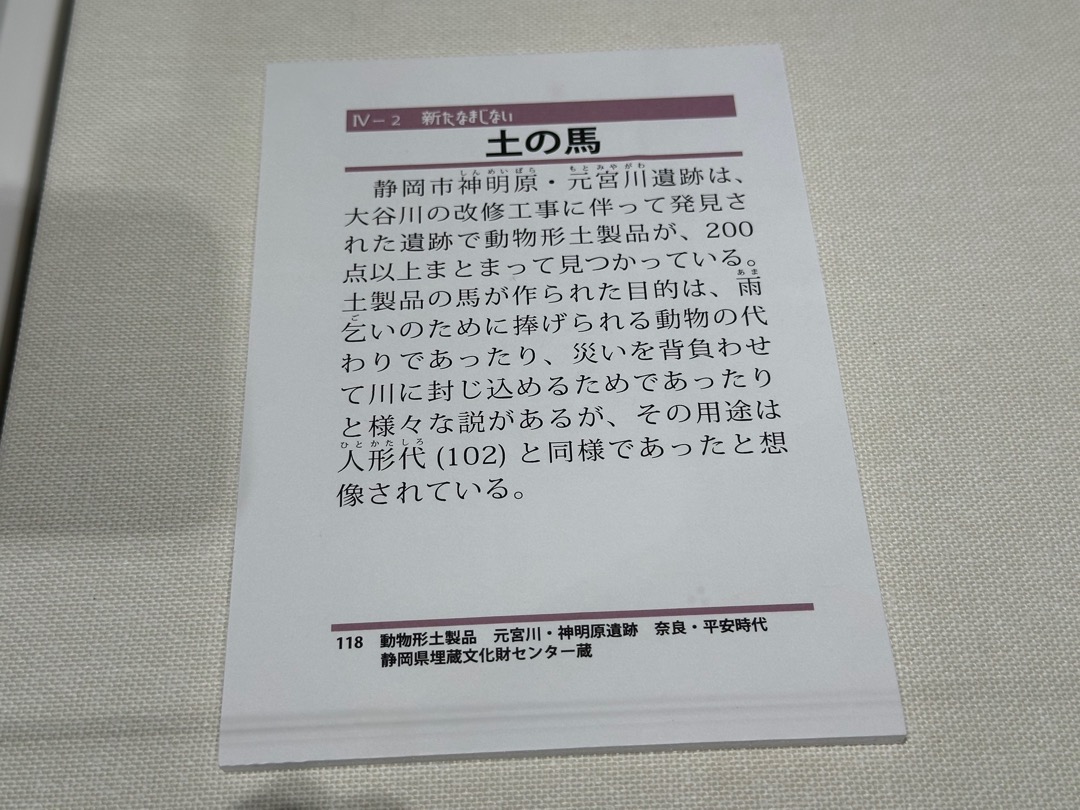 Ⅳ－2　新たなまじない
土の馬
　静岡市神明原・元宮川遺跡は、
大谷川の改修工事に伴って発見さ
れた遺跡で動物形土製品が、200
点以上まとまって見つかっている。
土製品の馬が作られた目的は、雨
乞いのために捧げられる動物の代
わりであったり、災いを背負わせ
て川に封じ込めるためであったり
と様々な説があるが、その用途は
人形代 (102) と同様であったと想
像されている。
118　動物形土製品　元宮川・神明原遺跡　奈良・平安時代
静岡県埋蔵文化財センター蔵